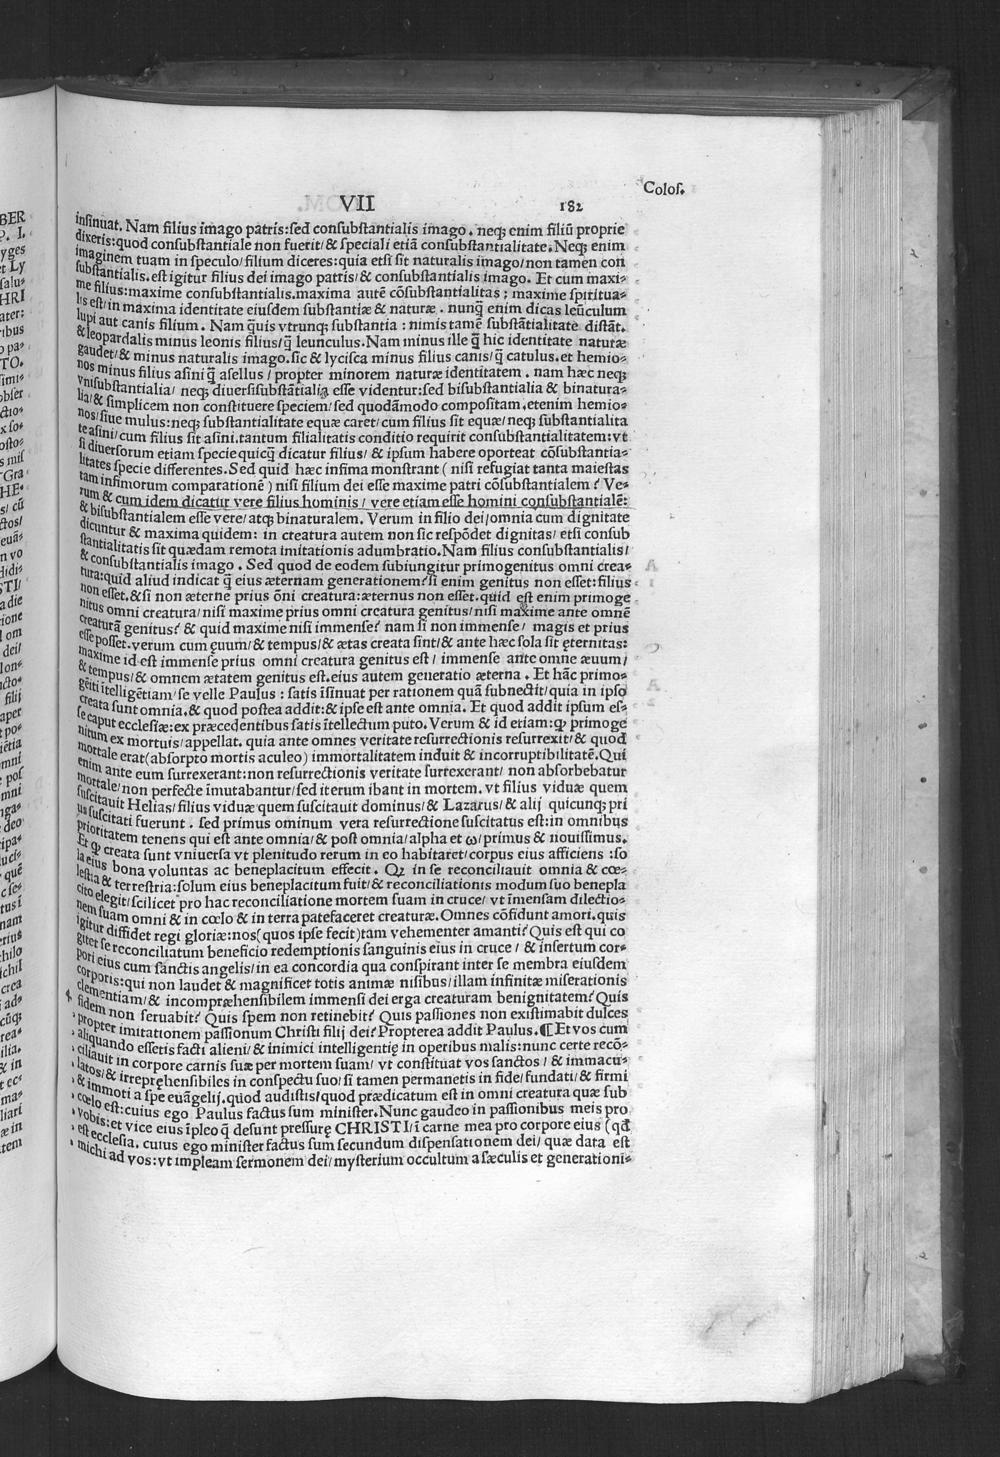 Colos.
VII 182
insinuat. Nam filius imago patris:sed consubstantialis imago. neq; enim filiū proprie
dixeris:quod consubstantiale non fuerit/& speciali etiā consubstantialitate. Neq; enim
imaginem tuam in speculo/filium diceres:quia etsi sit naturalis imago/non tamen con
substantialis. est igitur filius dei imago patris/& consubstantialis imago. Et cum maxi-
me filius:maxime consubstantialis. maxima autē cōsubstantialitas; maxime spiritua-
lis est/in maxima identitate eiusdem substantiæ & naturæ. nunq̄ enim dicas leūculum
lupi aut canis filium. Nam q̄uis vtrunq; substantia: nimis tamē substātialitate distāt.
& leopardalis minus leonis filius/q̄ leunculus. Nam minus ille q̄ hic identitate naturæ
gaudet/& minus naturalis imago. sic & lycisca minus filius canis/q̄ catulus. et hemio-
nos minus filius asini q̄ asellus/propter minorem naturæ identitatem. nam hæc neq;
vnisubstantialia/ neq; diuersisubstātialia esse videntur:sed bisubstantialia & binatura-
lia/& simplicem non constituere speciem/sed quodāmodo compositam. etenim hemio-
nos/siue mulus:neq; substantialitate equæ caret/cum filius sit equæ/neq; substantialita
te asini/cum filius sit asini. tantum filialitatis conditio requirit consubstantialitatem:vt
si diuersorum etiam specie quicq̄ dicatur filius/& ipsum habere oporteat cōsubstantia-
litates specie differentes. Sed quid hæc infima monstrant (nisi refugiat tanta maiestas
tam infimorum comparationē) nisi filium dei esse maxime patri cōsubstantialem? Ve-
rum & cum idem dicatur vere filius hominis/ vere etiam esse homini consubstantialē:
& bisubstantialem esse vere/atq; binaturalem. Verum in filio dei/omnia cum dignitate
dicuntur & maxima quidem: in creatura autem non sic respōdet dignitas/etsi consub
stantialitatis sit quædam remota imitationis adumbratio. Nam filius consubstantialis/
& consubstantialis imago. Sed quod de eodem subiungitur primogenitus omni crea-
tura:quid aliud indicat q̄ eius æternam generationem? si enim genitus non esset:filius
non esset. & si non æterne prius ōni creatura:æternus non esset. quid est enim primoge
nitus omni creatura/nisi maxime prius omni creatura genitus/nisi maxime ante omnē
creaturā genitus? & quid maxime nisi immense? nam si non immense/ magis et prius
esse posset. verum cum ęuum/& tempus/& ætas creata sint/& ante hæc sola sit ęternitas:
maxime id est immense prius omni creatura genitus est/ immense ante omne æuum/
& tempus/& omnem ætatem genitus est. eius autem generatio æterna. Et hāc primo-
gēiti ītelligētiam/se velle Paulus: satis īsinuat per rationem quā subnectit/quia in ipso
creata sunt omnia. & quod postea addit:& ipse est ante omnia. Et quod addit ipsum es-
se caput ecclesiæ:ex præcedentibus satis ītellectum puto. Verum & id etiam:ꝙ primoge
nitum ex mortuis/appellat. quia ante omnes veritate resurrectionis resurrexit/& quod
mortale erat(absorpto mortis aculeo) immortalitatem induit & incorruptibilitatē. Qui
enim ante eum surrexerant:non resurrectionis veritate surrexerant/ non absorbebatur
mortale/non perfecte īmutabantur/sed iterum ibant in mortem. vt filius viduæ quem
suscitauit Helias/filius viduæ quem suscitauit dominus/& Lazarus/& alij quicunq; pri
us suscitati fuerunt. sed primus ominum vera resurrectione suscitatus est:in omnibus
prioritatem tenens qui est ante omnia/& post omnia/alpha et ω/primus & nouissimus.
Et ꝙ creata sunt vniuersa vt plenitudo rerum in eo habitaret/corpus eius afficiens :so
la eius bona voluntas ac beneplacitum effecit. Q2 in se reconciliauit omnia & cœ-
lestia & terrestria:solum eius beneplacitum fuit/& reconciliationis modum suo benepla
cito elegit/scilicet pro hac reconciliatione mortem suam in cruce/ vt īmensam dilectio-
nem suam omni & in cœlo & in terra patefaceret creaturæ. Omnes cōfidunt amori. quis
igitur diffidet regi gloriæ:nos(quos ipse fecit)tam vehementer amanti? Quis est qui co
giter se reconciliatum beneficio redemptionis sanguinis eius in cruce/ & insertum cor-
pori eius cum sanctis angelis/in ea concordia qua conspirant inter se membra eiusdem
corporis:qui non laudet & magnificet totis animæ nisibus/illam infinitæ miserationis
clementiam/& incompræhensibilem immensi dei erga creaturam benignitatem? Quis
fidem non seruabit? Quis spem non retinebit? Quis passiones non existimabit dulces
propter imitationem passionum Christi filij dei? Propterea addit Paulus. ¶ Et vos cum
aliquando essetis facti alieni/& inimici intelligentię in operibus malis:nunc certe recō-
ciliauit in corpore carnis suæ per mortem suam/ vt constituat vos sanctos/ & immacu-
latos/& irreprehensibiles in conspectu suo/si tamen permanetis in fide/fundati/& firmi
& immoti a spe euāgelij. quod audistis/quod prædicatum est in omni creatura quæ sub
cœlo est:cuius ego Paulus factus sum minister. Nunc gaudeo in passionibus meis pro
vobis:et vice eius īpleo q̄ desunt pressurę CHRISTI/ī carne mea pro corpore eius (qd̄
est ecclesia. cuius ego minister factus sum secundum dispensationem dei/quæ data est
michi ad vos:vt impleam sermonem dei/mysterium occultum a sæculis et generationi-